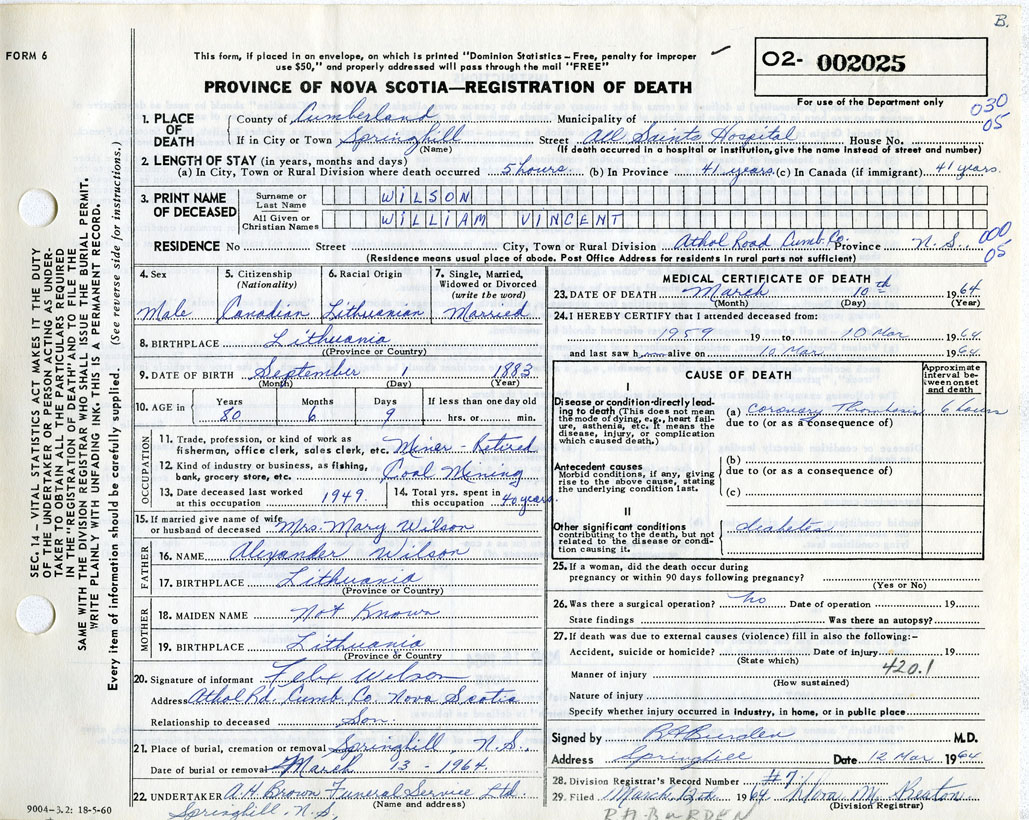 B.
FORM 6
This form, if placed in an envelope, on which is printed "Dominion Statistics – Free, penalty for improper
use $50," and properly addressed will pass through the mail "FREE"
O2- 002025
For use of the Department only
PROVINCE OF NOVA SCOTIA—REGISTRATION OF DEATH
030
05
1. PLACE OF DEATH
County of Cumberland Municipality of
If in City or Town Springhill Street All Saints Hospital House No.
(Name) (If death occurred in a hospital or institution, give the name instead of street and number)
2. LENGTH OF STAY (in years, months and days)
(a) In City, Town or Rural Division where death occurred 5 hours (b) In Province 41 years. (c) In Canada (if immigrant) 41 years.
3. PRINT NAME OF DECEASED
Surname or Last Name WILSON
All Given or Christian Names WILLIAM VINCENT
RESIDENCE No Street City, Town or Rural Division Athol Road Cumb. Co. Province N.S.
000
05
(Residence means usual place of abode. Post Office Address for residents in rural parts not sufficient)
4. Sex
Male
5. Citizenship
(Nationality)
Canadian
6. Racial Origin
Lithuanian
7. Single, Married,
Widowed or Divorced
(write the word)
Married
8. BIRTHPLACE Lithuania
(Province or Country)
9. DATE OF BIRTH September 1 1883
(Month) (Day) (Year)
10. AGE in
Years 80
Months 6
Days 9
If less than one day old
hrs. or min.
OCCUPATION
11. Trade, profession, or kind of work as
fisherman, office clerk, sales clerk, etc. Miner - Retired
12. Kind of industry or business, as fishing,
bank, grocery store, etc. Coal Mining
13. Date deceased last worked
at this occupation 1949.
14. Total yrs. spent in
this occupation 40 years
15. If married give name of wife
or husband of deceased Mrs. Mary Wilson
FATHER
16. NAME Alexander Wilson
17. BIRTHPLACE Lithuania
(Province or Country)
MOTHER
18. MAIDEN NAME Not Known
19. BIRTHPLACE Lithuania
(Province or Country)
20. Signature of informant Felix Wilson
Address Athol Rd. Cumb. Co. Nova Scotia
Relationship to deceased Son.
21. Place of burial, cremation or removal Springhill, N.S.,
Date of burial or removal March 13 - 1964.
22. UNDERTAKER A.H. Brown Funeral Service Ltd.
(Name and address)
Springhill, N.S.
MEDICAL CERTIFICATE OF DEATH
23. DATE OF DEATH March 10th 1964
(Month) (Day) (Year)
24. I HEREBY CERTIFY that I attended deceased from:
1959 19 to 10 Mar 1964
and last saw h im alive on 10 Mar 1964
CAUSE OF DEATH
Approximate
interval be-
tween onset
and death
I
Disease or condition directly lead-
ing to death (This does not mean
the mode of dying, e.g., heart fail-
ure, asthenia, etc. It means the
disease, injury, or complication
which caused death.)
(a) Coronary Thrombosis 6 hours
due to (or as a consequence of)
Antecedent causes
Morbid conditions, if any, giving
rise to the above cause, stating
the underlying condition last.
(b)
due to (or as a consequence of)
(c)
II
Other significant conditions
contributing to the death, but not
related to the disease or condi-
tion causing it.
diabetes
25. If a woman, did the death occur during
pregnancy or within 90 days following pregnancy?
(Yes or No)
26. Was there a surgical operation? no Date of operation 19
State findings Was there an autopsy?
27. If death was due to external causes (violence) fill in also the following:–
Accident, suicide or homicide? Date of injury 19
(State which)
420.1
Manner of injury
(How sustained)
Nature of injury
Specify whether injury occurred in industry, in home, or in public place
Signed by R H Burden M.D.
Address Springhill Date 12 Mar 1964
28. Division Registrar's Record Number #7
29. Filed March 12th 1964 Nora M. Beaton
(Division Registrar)
R.H. BURDEN
SEC. 14 – VITAL STATISTICS ACT MAKES IT THE DUTY
OF THE UNDERTAKER OR PERSON ACTING AS UNDER-
TAKER TO OBTAIN ALL THE PARTICULARS REQUIRED
IN THE "REGISTRATION OF DEATH" AND TO FILE THE
SAME WITH THE DIVISION REGISTRAR WHO SHALL ISSUE THE BURIAL PERMIT.
WRITE PLAINLY WITH UNFADING INK. THIS IS A PERMANENT RECORD.
Every item of information should be carefully supplied. (See reverse side for instructions.)
9004–3.2: 18-5-60